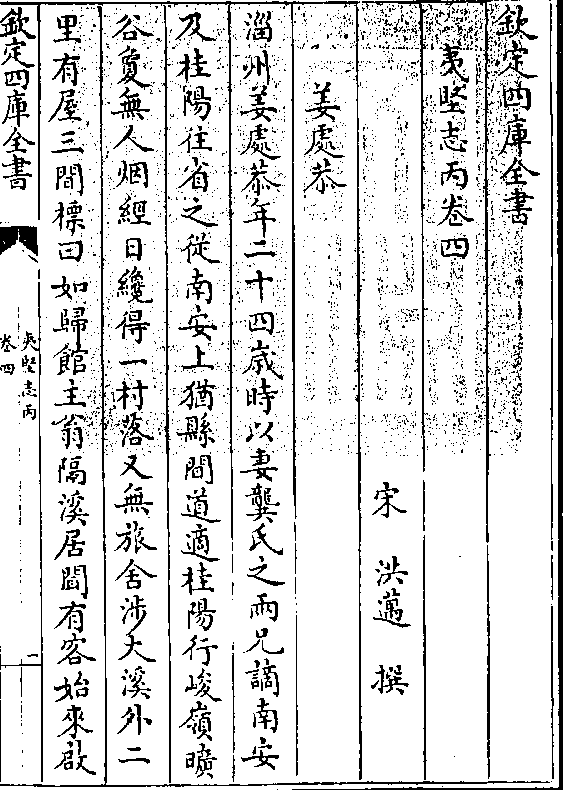 欽定四庫全書
夷堅志丙卷四
宋 洪邁 撰
姜處恭
淄州姜處恭年二十四歲時以妻龔氏之兩兄謫南安
及桂陽往省之從南安上猶縣間道適桂陽行峻嶺曠
谷㚌無人烟經日纔得一村落又無旅舍涉大溪外二
里有屋三間標曰如歸館主翁隔溪居聞有客始來啟
欽定四庫全書
夷堅志丙
卷四
一